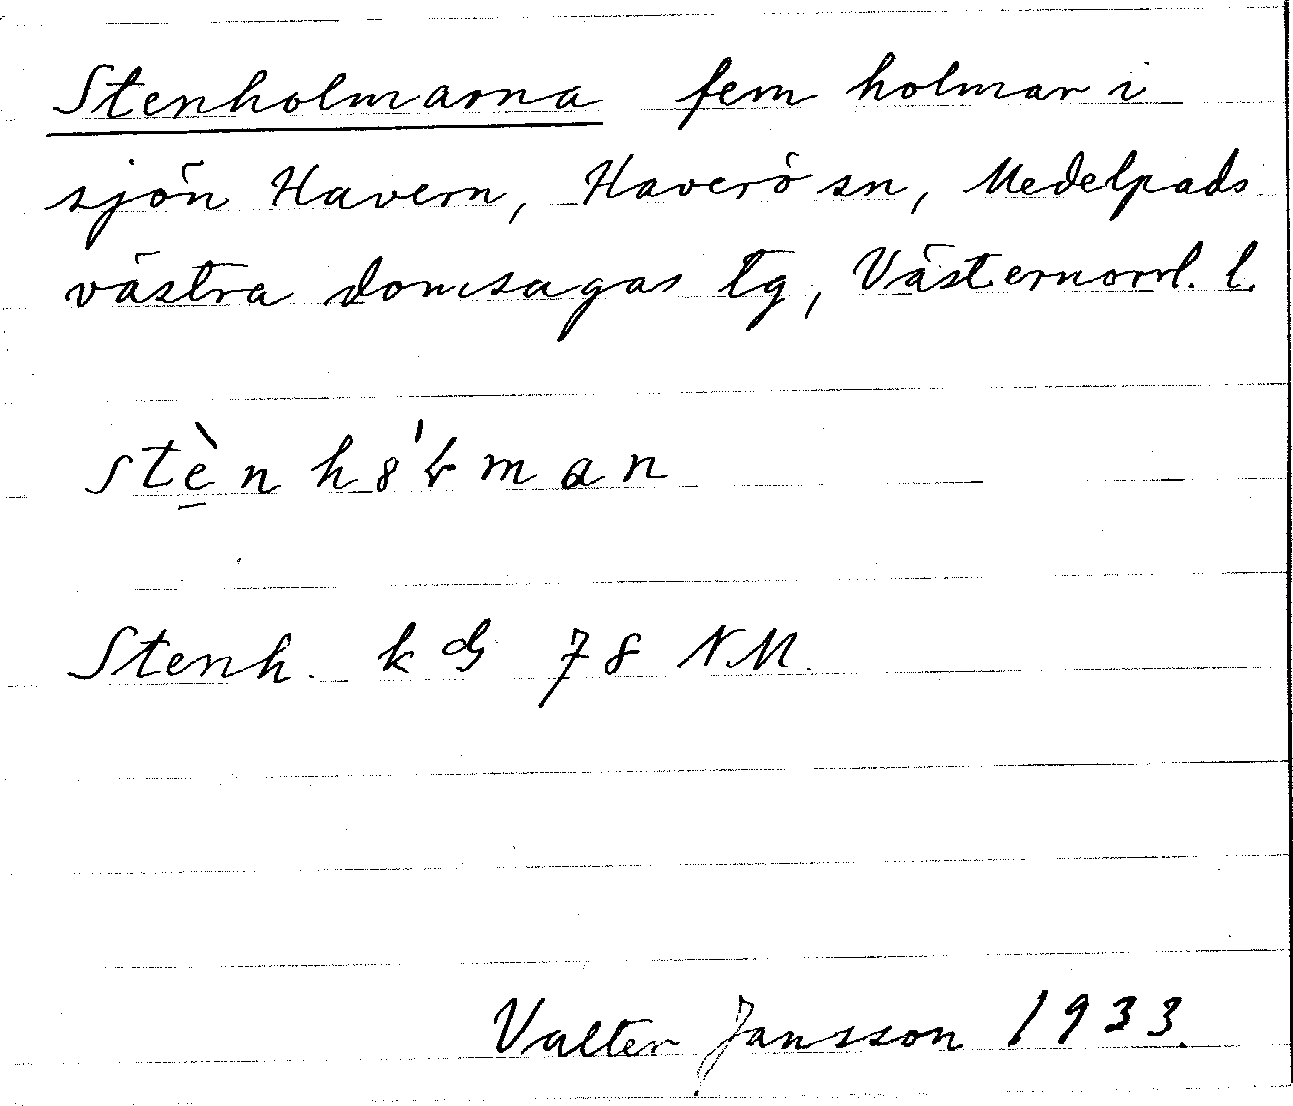 Stenholmarna fem holmar i
sjön Havern, Haverö sn, Medelpads
västra domsagas tg, Västernorrl. l.
stènh8'łman
Stenh. k G 78 NM.
Valter Jansson 1933.